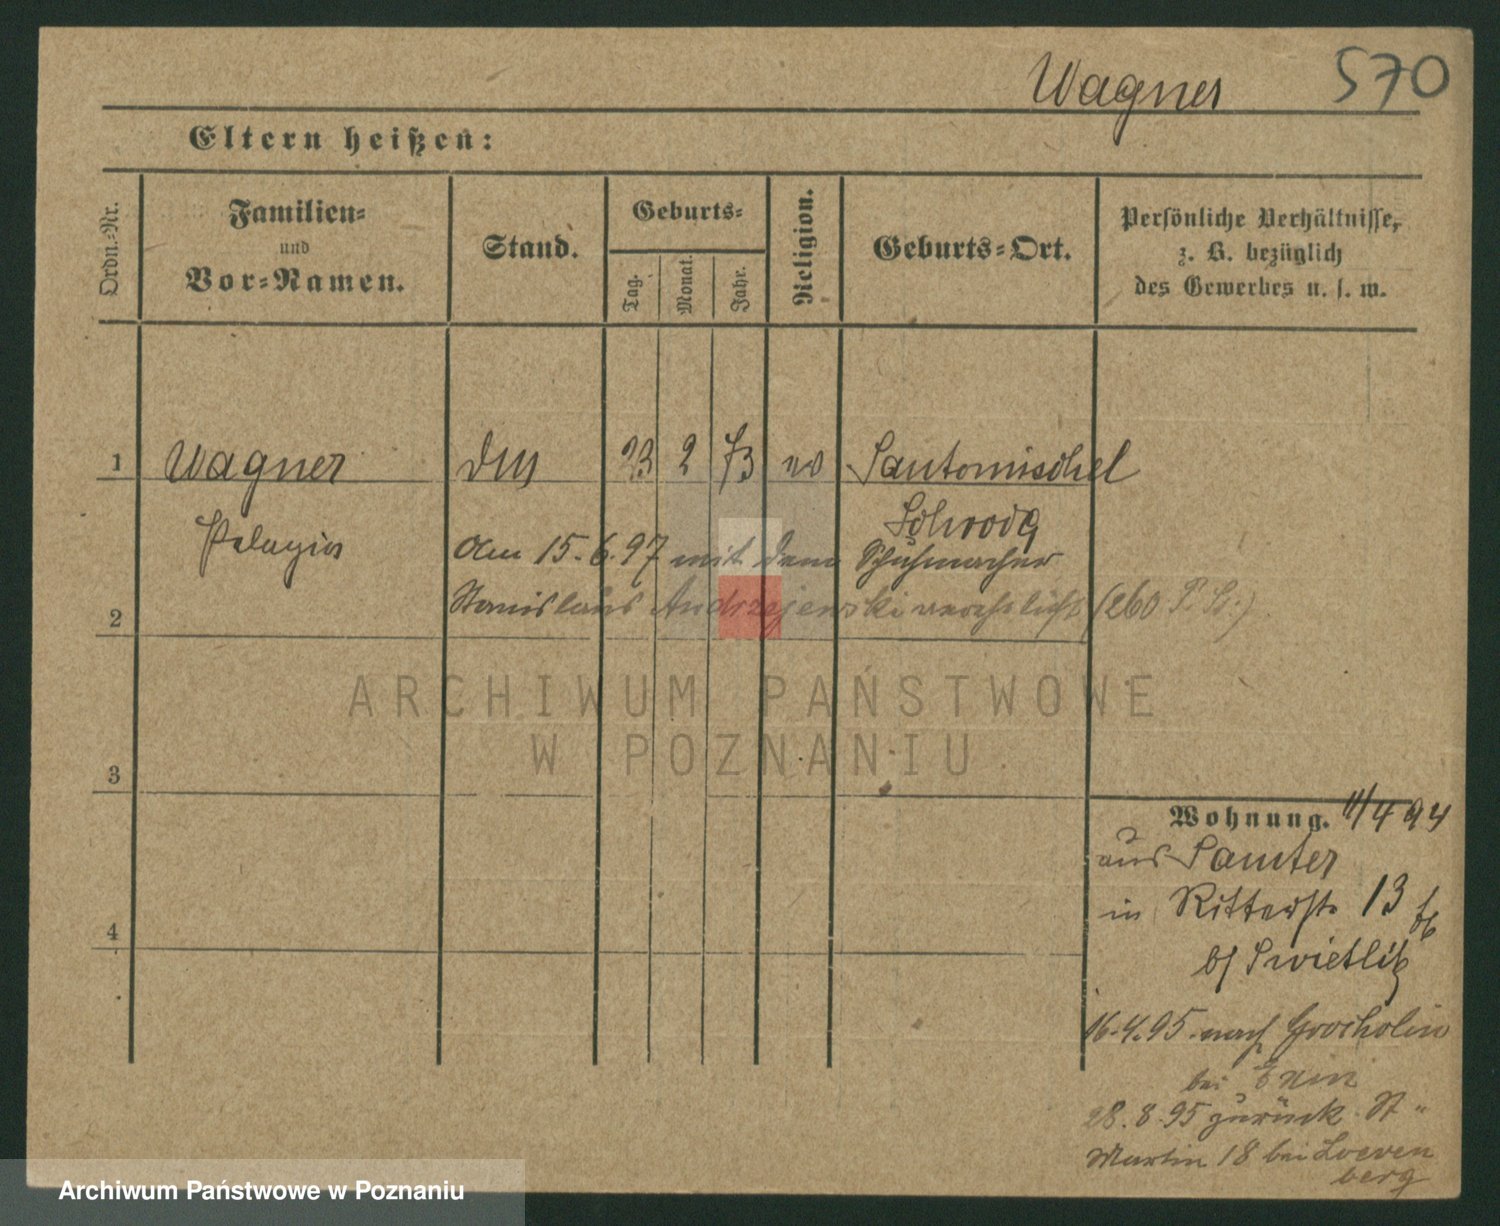 Wagner 570
Eltern heißen:
Ordn.-Nr.
Familien-
und
Vor-Namen.
Stand.
Geburts-
Tag.
Monat.
Jahr.
Religion.
Geburts-Ort.
Persönliche Verhältnisse,
z. B. bezüglich
des Gewerbes u. s. w.
1 Wagner 23 2 73 Santomischel
Pelagia Schroda
Am 15.6.97 mit dem Schuhmacher
2 Stanislaus Andrzejewski verehelicht (260 P. St.)
ARCHIWUM PAŃSTWOWE
W POZNANIU
3
Wohnung. 11/4 94
aus Samter
in Ritterstr 13
b/ Swietlik
4
16.4.95 nach Grocholin
bei Exin
28.8.95 zurück St
Martin 18 bei Loewen
berg
Archiwum Państwowe w Poznaniu